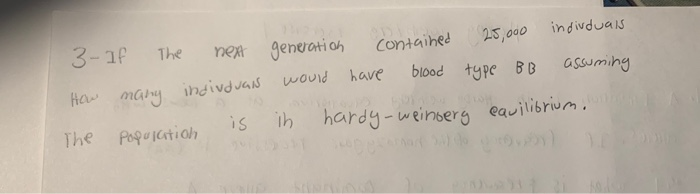 3-If The next generation contained 25,000 indivduals
How many indivduals would have blood type BB assuming
The Population is in hardy-weinberg equilibrium.